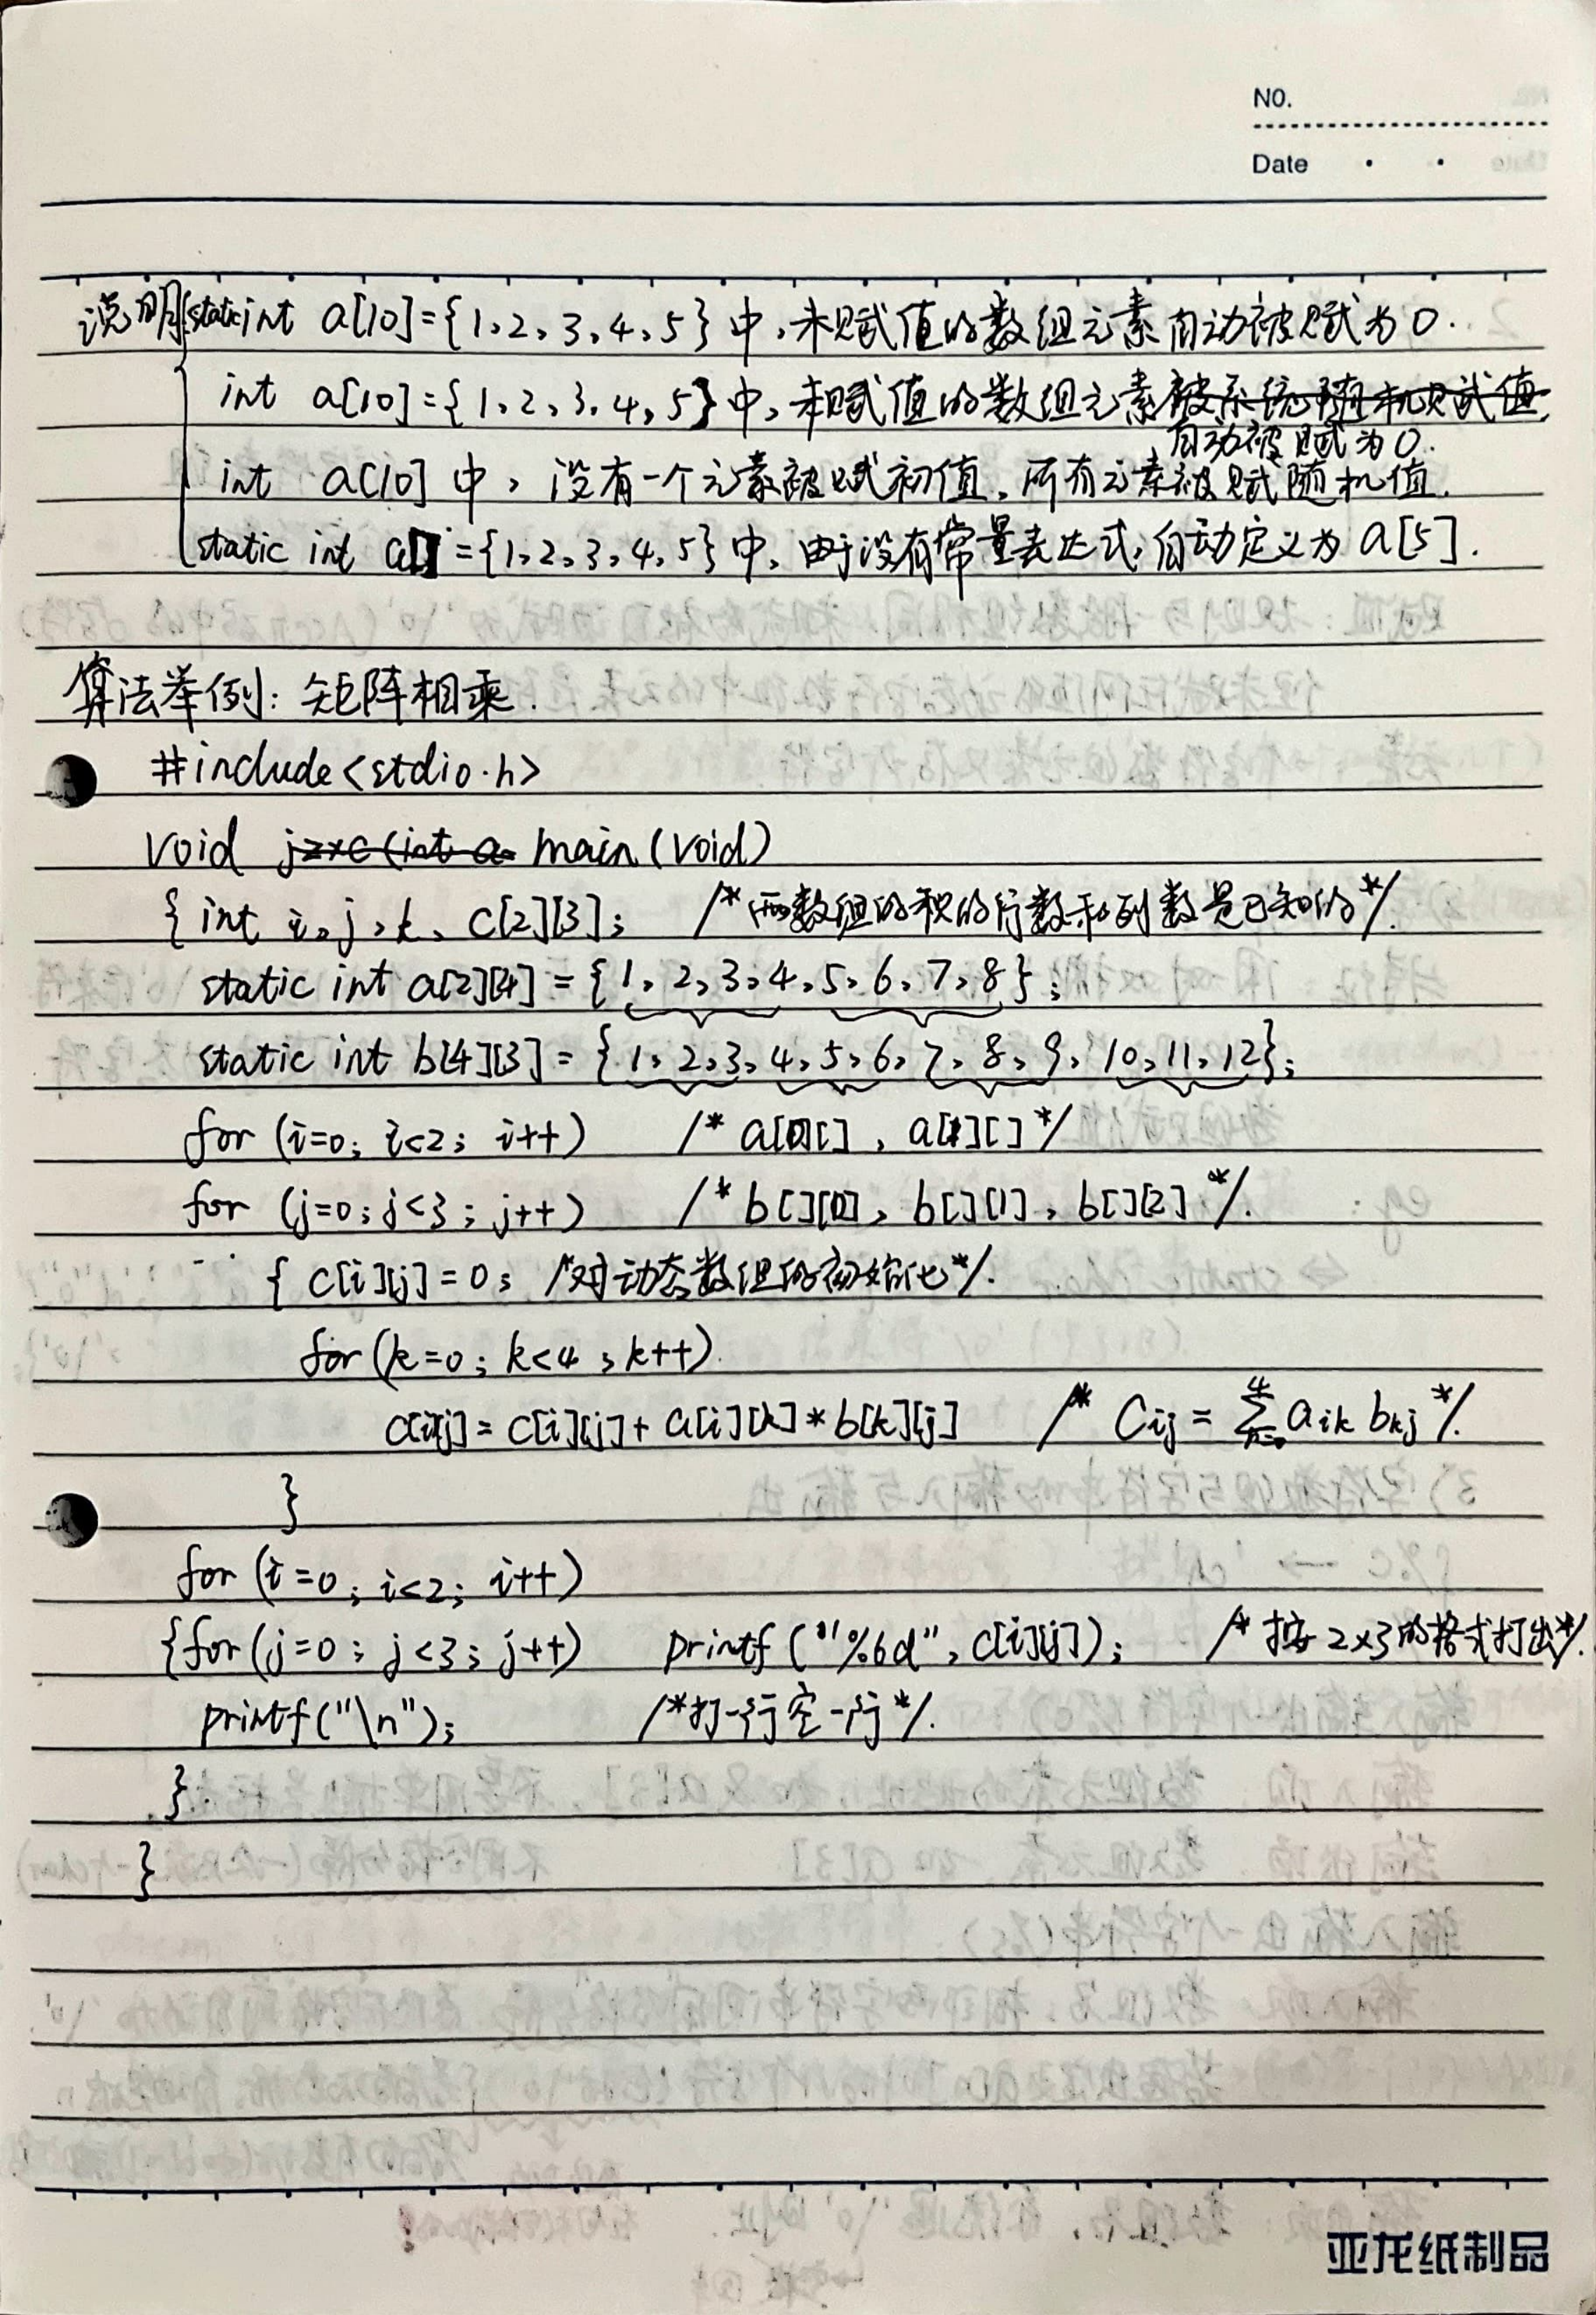 NO.
Date
说明 static int a[10]={1,2,3,4,5}中,未赋值的数组元素自动被赋为0.
int a[10]={1,2,3,4,5}中,未赋值的数组元素被系统随机赋值
自动被赋为0.
int a[10]中,没有一个元素被赋初值,所有元素被赋随机值.
static int a[]={1,2,3,4,5}中,由于没有常量表达式,自动定义为a[5].
算法举例:矩阵相乘.
#include<stdio.h>
void jzxc(int a main(void)
{ int i,j,k, c[2][3]; /*两数组的积的行数和列数是已知的*/.
static int a[2][4]={1,2,3,4,5,6,7,8};
static int b[4][3]={1,2,3,4,5,6,7,8,9,10,11,12};
for (i=0; i<2; i++) /* a[0][], a[1][] */
for (j=0; j<3; j++) /* b[][0], b[][1], b[][2] */.
{ c[i][j]=0; /*对动态数组的初始化*/.
for(k=0; k<4; k++)
c[i][j]=c[i][j]+a[i][k]*b[k][j] /* Cij=∑aik bkj */.
}
for (i=0; i<2; i++)
{for(j=0; j<3; j++) printf("%6d",c[i][j]); /*按2×3的格式打出*/.
printf("\n"); /*打一行空一行*/.
}
}
亚龙纸制品